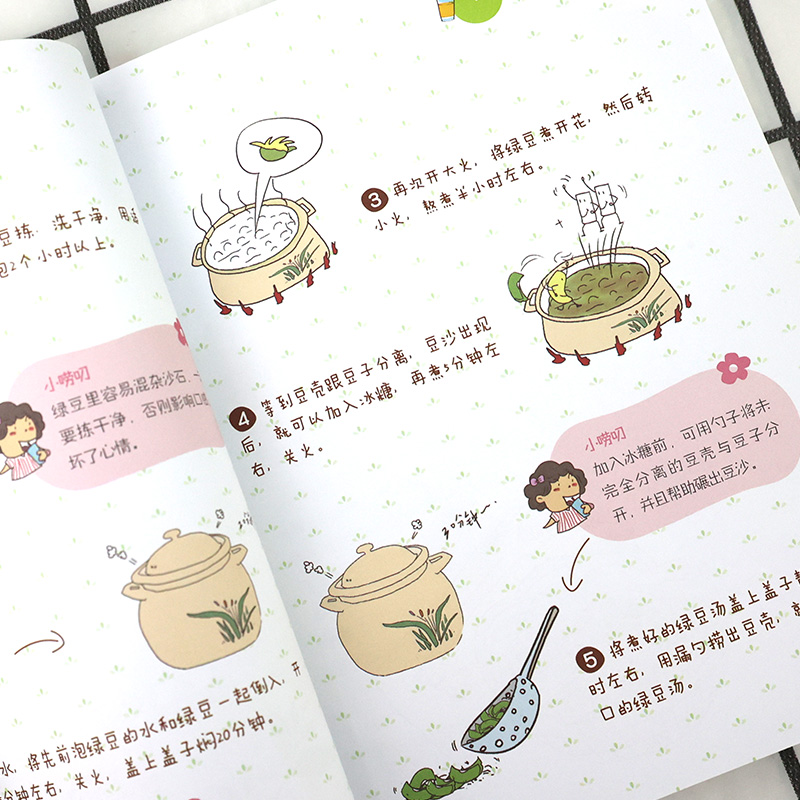 豆拣、洗干净，用
泡2个小时以上。
小唠叨
绿豆里容易混杂沙石，一
要拣干净，否则影响口
坏了心情。
水，将先前泡绿豆的水和绿豆一起倒入，开
分钟左右，关火，盖上盖子焖20分钟。
3 再次开大火，将绿豆煮开花，然后转
小火，熬煮半小时左右。
4 等到豆壳跟豆子分离，豆沙出现
后，就可以加入冰糖，再煮5分钟左
右，关火。
小唠叨
加入冰糖前，可用勺子将未
完全分离的豆壳与豆子分
开，并且帮助碾出豆沙。
30分钟~
5 将煮好的绿豆汤盖上盖子
时左右，用漏勺捞出豆壳，就
口的绿豆汤。